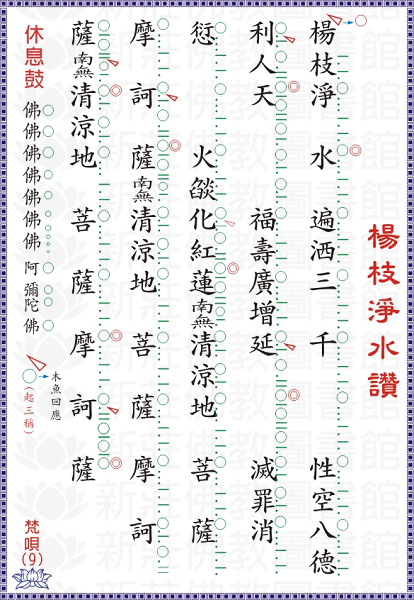 楊枝淨水讚
楊枝淨水遍洒三千性空八德
利人天福壽廣增延滅罪消
愆火燄化紅蓮南無清涼地菩薩
摩訶薩南無清涼地菩薩摩訶
薩南無清涼地菩薩摩訶薩
休息鼓
佛佛佛佛佛佛佛阿彌陀佛
木魚回應
(起三稱)
梵唄
(9)